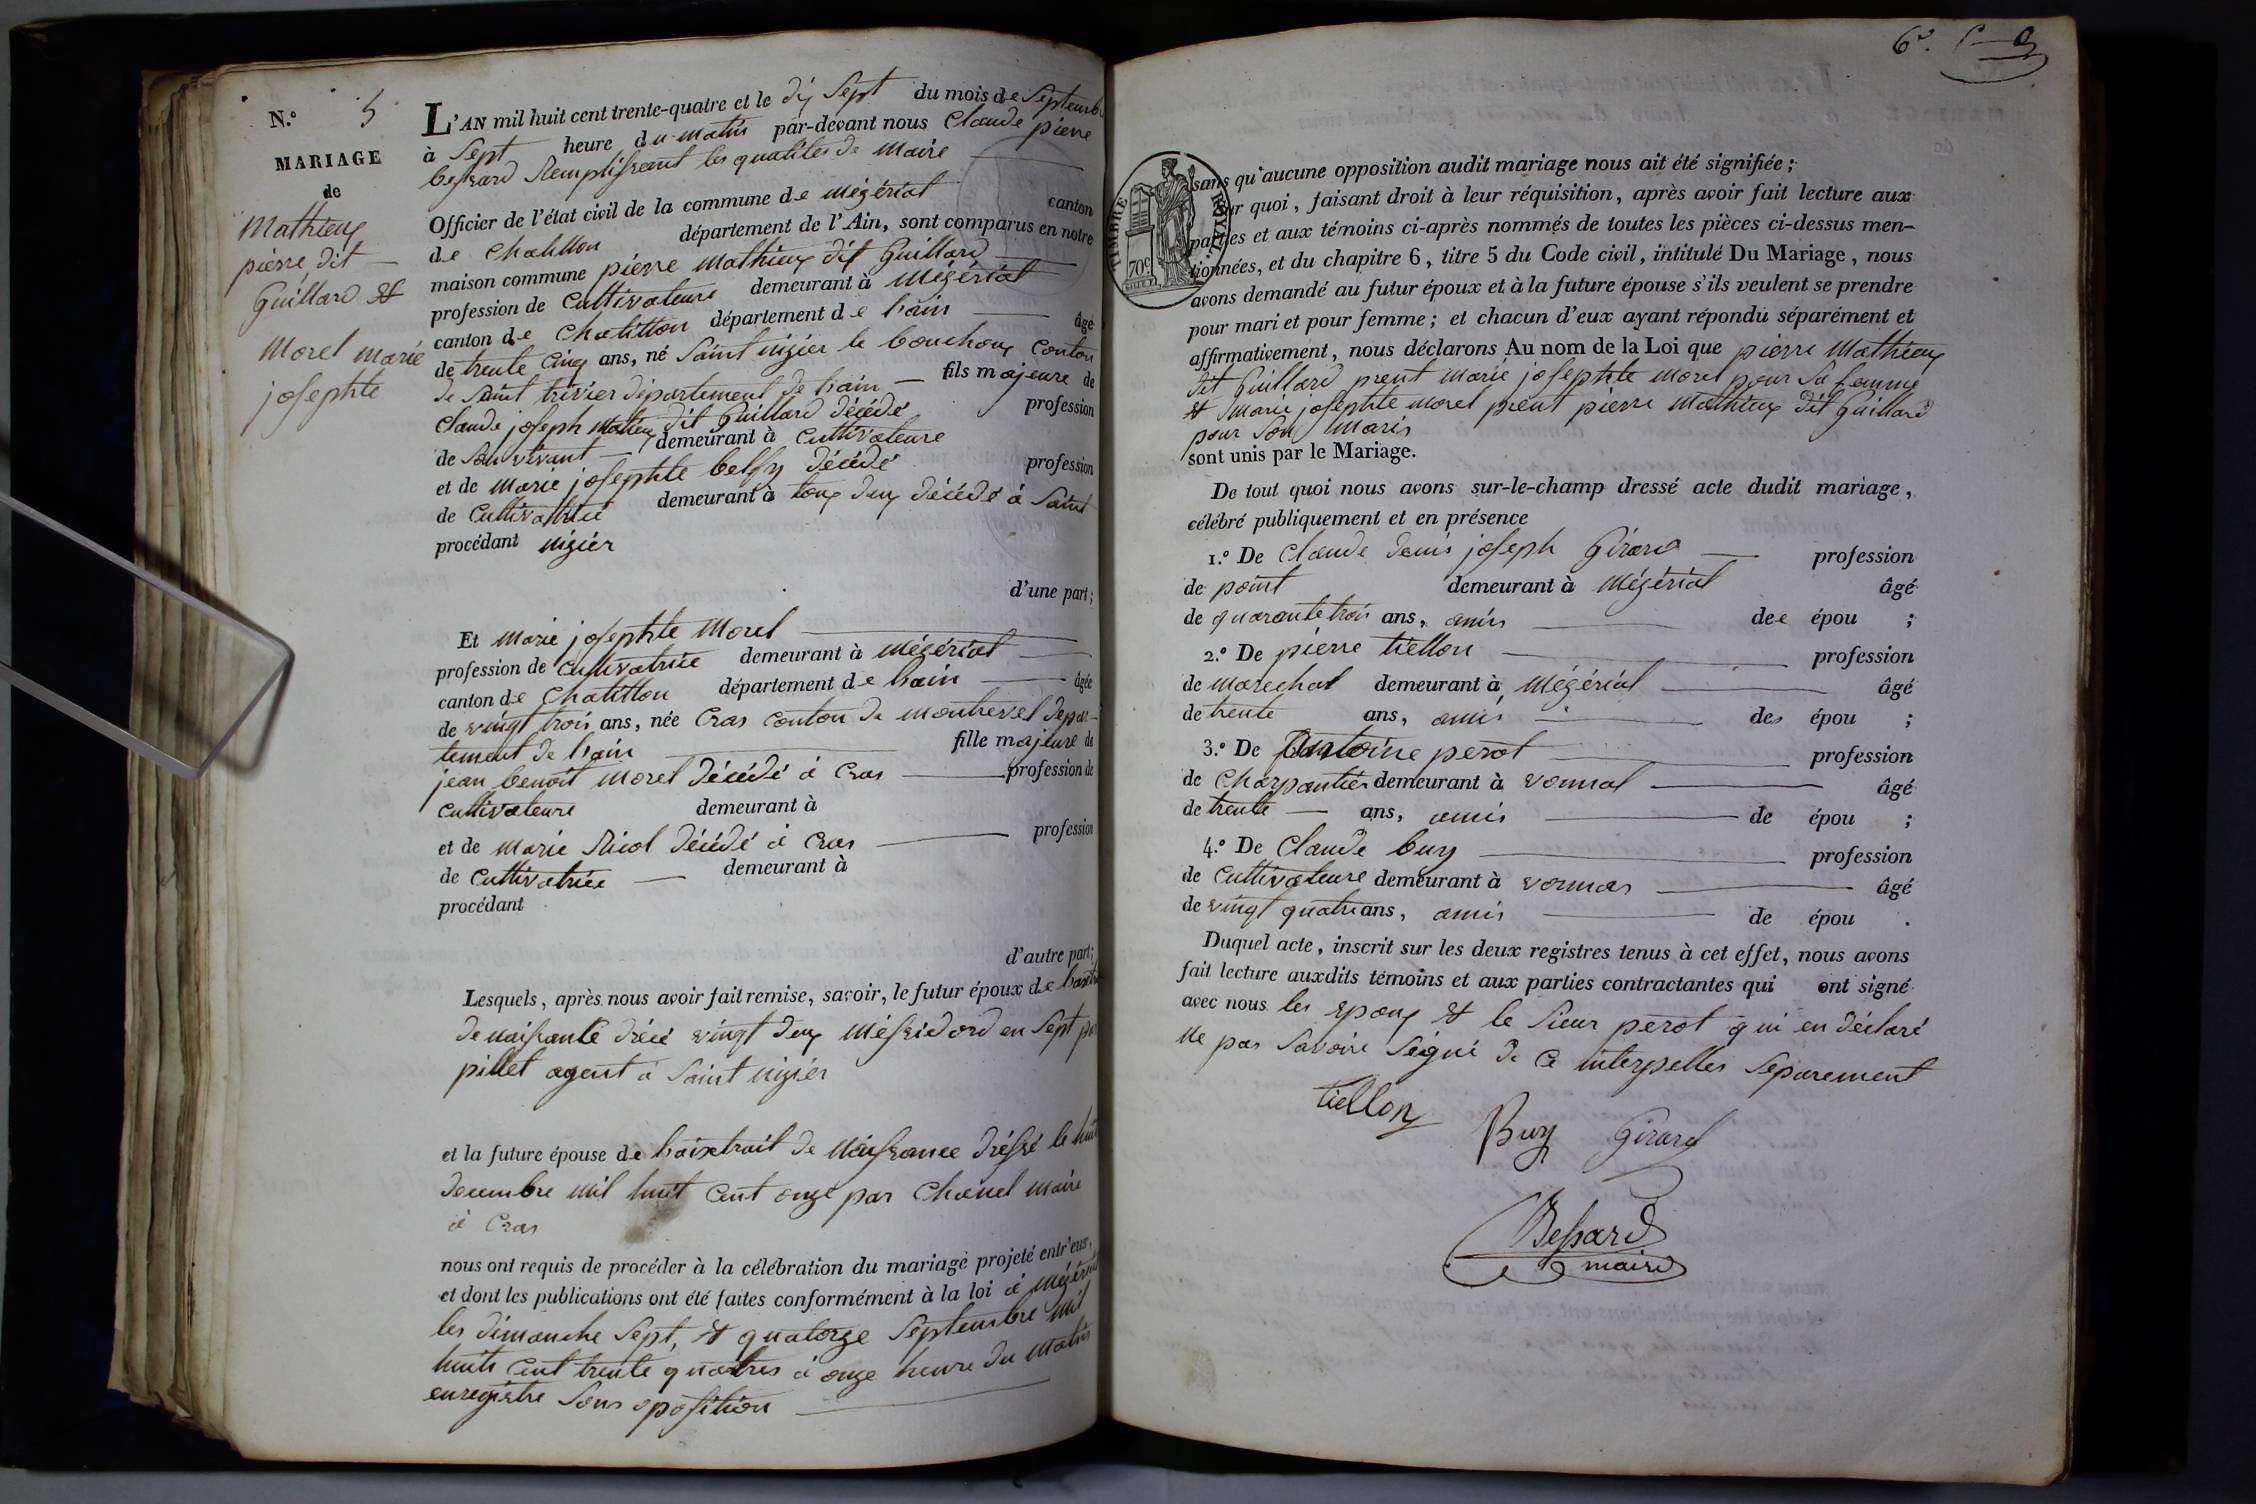 N.º 5
MARIAGE
de
Mathieux
pierre dit
Guillard et
Morel marie
josephte
L'AN mil huit cent trente-quatre et le dix Sept du mois de Septembre
à Sept heure du matin par-devant nous Claude pierre
bessard Remplissant les qualites de maire
Officier de l'état civil de la commune de mézériat canton
de Chatillon département de l'Ain, sont comparus en notre
maison commune pierre Mathieux dit Guillard
profession de Cultivateure demeurant à mézériat
canton de Chatillon département de lain âgé
de trente Cinq ans, né Saint nizier le bouchoux Conton
de Saint trivier departement de lain fils majeure de
Claude joseph Mathieux dit Guillard décédé profession
de Son vivant demeurant à Cultivateure
et de marie josephte décédé profession
de Cultivatrice demeurant à toux deux décédé à Saint
procédant nizier
d'une part;
Et marie josephte Morel
profession de Cultivatrice demeurant à mézériat
canton de Chatillon département de lain âgée
de vingt trois ans, née Cras Conton de montrevel depar-
tement de lain fille majeure de
jean benoit morel décédé à Cras profession de
Cultivateure demeurant à
et de marie décédé à Cras profession
de Cultivatrice demeurant à
procédant
d'autre part;
Lesquels, après nous avoir fait remise, savoir, le futur époux de
de naissance vingt deux Messidord en Sept par
pillet agent à Saint nizier
et la future épouse de laixtrait de Naissance dréssé le huit
decembre mil huit Cent onze par Chanel maire
à Cras
nous ont requis de procéder à la célébration du mariage projeté entr'eux,
et dont les publications ont été faites conformément à la loi à mézériat
les dimanche Sept, et quatorze Septembre mil
huits Cent trente quatres à onze heure du matin
enregistre Sans oposition
6e.
TIMBRE ROYAL
70c
sans qu'aucune opposition audit mariage nous ait été signifiée;
ur quoi, faisant droit à leur réquisition, après avoir fait lecture aux
parties et aux témoins ci-après nommés de toutes les pièces ci-dessus men-
tionnées, et du chapitre 6, titre 5 du Code civil, intitulé Du Mariage, nous
avons demandé au futur époux et à la future épouse s'ils veulent se prendre
pour mari et pour femme; et chacun d'eux ayant répondu séparément et
affirmativement, nous déclarons Au nom de la Loi que pierre Mathieux
dit Guillard prent marie josephte morel pour Sa femme
et marie josephte morel prent pierre Mathieux dit Guillard
pour Son Maris
sont unis par le Mariage.
De tout quoi nous avons sur-le-champ dressé acte dudit mariage,
célébré publiquement et en présence
1.º De Claude denis joseph Girard profession
de point demeurant à Mézériat âgé
de quarante trois ans, amis dee épou ;
2.º De pierre tiellon profession
de marechal demeurant à Mézériat âgé
de trente ans, amis des épou ;
3.º De Antoine perot profession
de Charpantier demeurant à vonnas âgé
de trente ans, amis de épou ;
4.º De Claude buy profession
de Cultivateure demeurant à vonnas âgé
de vingt quatre ans, amis de épou .
Duquel acte, inscrit sur les deux registres tenus à cet effet, nous avons
fait lecture auxdits témoins et aux parties contractantes qui ont signé
avec nous les epoux et le Sieur perot qui en déclaré
ne pas Savoire Signé de Ce interpelles Separement
tiellon
Buy Girard
Bessard
maire